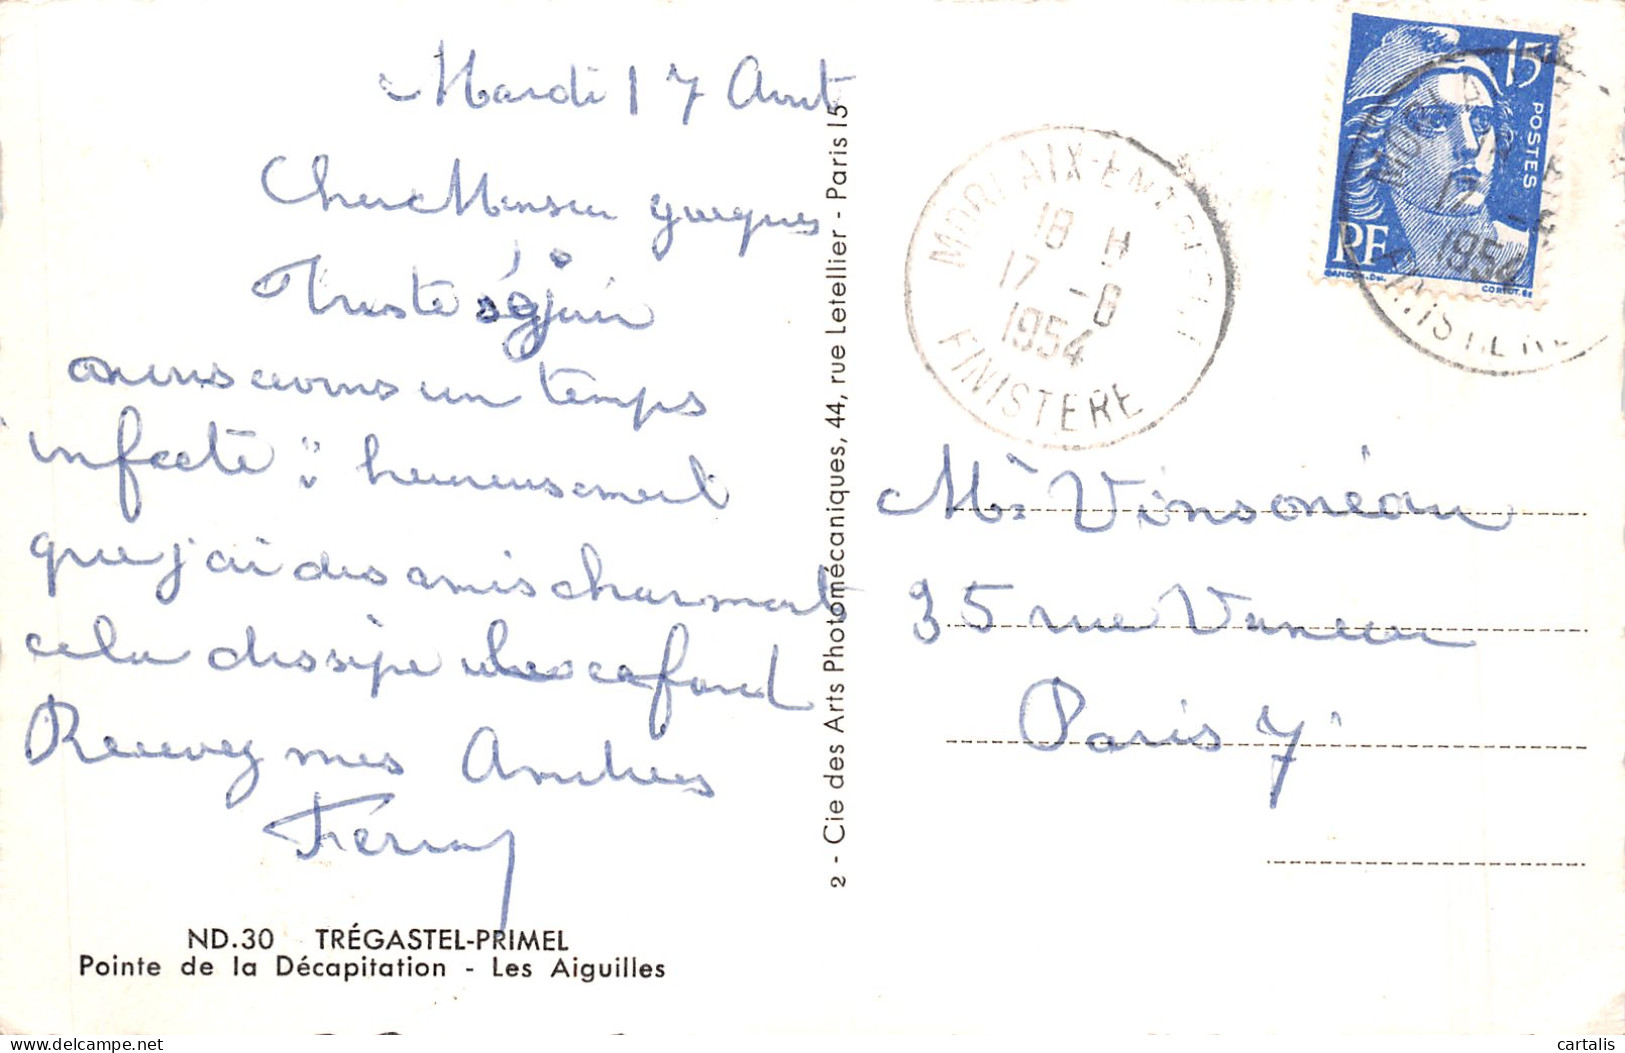 Mardi 17 Aout
Cher Monsieur
Triste séjour
nous avons un temps
infecte heureusement
que j'ai des amis charmant
cela dissipe le cafard
Recevez mes Amitiées
2 - Cie des Arts Photomécaniques, 44, rue Letellier - Paris 15
ND.30 TRÉGASTEL-PRIMEL
Pointe de la Décapitation - Les Aiguilles
15F
POSTES
RF
GANDON.DEL
CORTOT.SC
MORLAIX-ENTREPOT
18 H
17 -8
1954
FINISTERE
17 -8
1954
FINISTERE
Mr Vinsonéau
35 rue Vaneau
Paris 7
cartalis